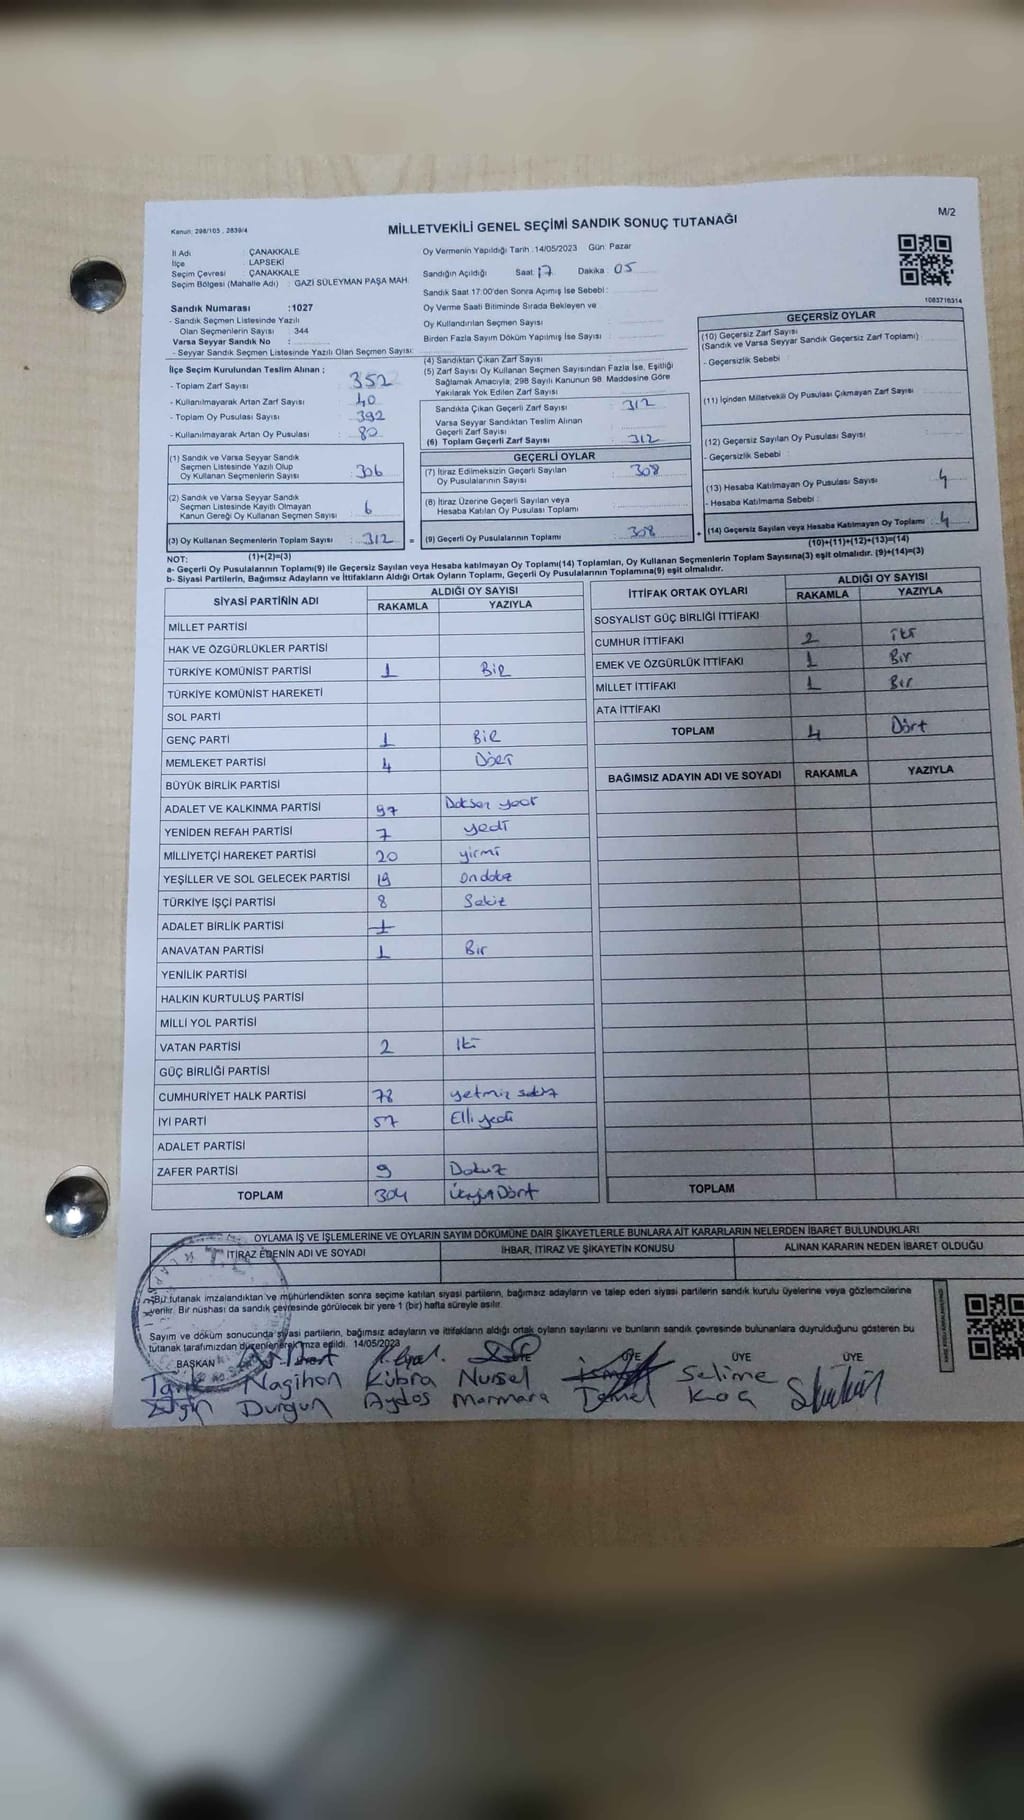 M/2
Kanun: 298/105 , 2839/4
MİLLETVEKİLİ GENEL SEÇİMİ SANDIK SONUÇ TUTANAĞI
İl Adı : ÇANAKKALE
İlçe : LAPSEKİ
Seçim Çevresi : ÇANAKKALE
Seçim Bölgesi (Mahalle Adı) : GAZİ SÜLEYMAN PAŞA MAH.
Sandık Numarası :1027
- Sandık Seçmen Listesinde Yazılı
Olan Seçmenlerin Sayısı : 344
Varsa Seyyar Sandık No :
- Seyyar Sandık Seçmen Listesinde Yazılı Olan Seçmen Sayısı:
Oy Vermenin Yapıldığı Tarih :14/05/2023 Gün: Pazar
Sandığın Açıldığı Saat 17 Dakika : 05
Sandık Saat 17:00'den Sonra Açımış İse Sebebi :
Oy Verme Saati Bitiminde Sırada Bekleyen ve
Oy Kullandırılan Seçmen Sayısı :
Birden Fazla Sayım Döküm Yapılmış İse Sayısı :
1083716314
İlçe Seçim Kurulundan Teslim Alınan ;
- Toplam Zarf Sayısı : 352
- Kullanılmayarak Artan Zarf Sayısı : 40
- Toplam Oy Pusulası Sayısı : 392
- Kullanılmayarak Artan Oy Pusulası : 80
(1) Sandık ve Varsa Seyyar Sandık
Seçmen Listesinde Yazılı Olup
Oy Kullanan Seçmenlerin Sayısı : 306
(2) Sandık ve Varsa Seyyar Sandık
Seçmen Listesinde Kayıtlı Olmayan
Kanun Gereği Oy Kullanan Seçmen Sayısı : 6
(3) Oy Kullanan Seçmenlerin Toplam Sayısı : 312 =
(1)+(2)=(3)
(4) Sandıktan Çıkan Zarf Sayısı :
(5) Zarf Sayısı Oy Kullanan Seçmen Sayısından Fazla İse, Eşitliği
Sağlamak Amacıyla; 298 Sayılı Kanunun 98. Maddesine Göre
Yakılarak Yok Edilen Zarf Sayısı :
Sandıkta Çıkan Geçerli Zarf Sayısı : 312
Varsa Seyyar Sandıktan Teslim Alınan
Geçerli Zarf Sayısı :
(6) Toplam Geçerli Zarf Sayısı : 312
GEÇERLİ OYLAR
(7) İtiraz Edilmeksizin Geçerli Sayılan
Oy Pusulalarının Sayısı : 308
(8) İtiraz Üzerine Geçerli Sayılan veya
Hesaba Katılan Oy Pusulası Toplamı :
(9) Geçerli Oy Pusulalarının Toplamı : 308 +
GEÇERSİZ OYLAR
(10) Geçersiz Zarf Sayısı
(Sandık ve Varsa Seyyar Sandık Geçersiz Zarf Toplamı) :
- Geçersizlik Sebebi :
(11) İçinden Milletvekili Oy Pusulası Çıkmayan Zarf Sayısı :
(12) Geçersiz Sayılan Oy Pusulası Sayısı :
- Geçersizlik Sebebi :
(13) Hesaba Katılmayan Oy Pusulası Sayısı : 4
- Hesaba Katılmama Sebebi :
(14) Geçersiz Sayılan veya Hesaba Katılmayan Oy Toplamı : 4
(10)+(11)+(12)+(13)=(14)
NOT:
a- Geçerli Oy Pusulalarının Toplamı(9) ile Geçersiz Sayılan veya Hesaba katılmayan Oy Toplamı(14) Toplamları, Oy Kullanan Seçmenlerin Toplam Sayısına(3) eşit olmalıdır. (9)+(14)=(3)
b- Siyasi Partilerin, Bağımsız Adayların ve İttifakların Aldığı Ortak Oyların Toplamı, Geçerli Oy Pusulalarının Toplamına(9) eşit olmalıdır.
SİYASİ PARTİNİN ADI ALDIĞI OY SAYISI
RAKAMLA YAZIYLA
MİLLET PARTİSİ
HAK VE ÖZGÜRLÜKLER PARTİSİ
TÜRKİYE KOMÜNİST PARTİSİ 1 Bir
TÜRKİYE KOMÜNİST HAREKETİ
SOL PARTİ
GENÇ PARTİ 1 Bir
MEMLEKET PARTİSİ 4 Dört
BÜYÜK BİRLİK PARTİSİ
ADALET VE KALKINMA PARTİSİ 97 Doksan yedi
YENİDEN REFAH PARTİSİ 7 yedi
MİLLİYETÇİ HAREKET PARTİSİ 20 yirmi
YEŞİLLER VE SOL GELECEK PARTİSİ 19 ondokuz
TÜRKİYE İŞÇİ PARTİSİ 8 Sekiz
ADALET BİRLİK PARTİSİ 1
ANAVATAN PARTİSİ 1 Bir
YENİLİK PARTİSİ
HALKIN KURTULUŞ PARTİSİ
MİLLİ YOL PARTİSİ
VATAN PARTİSİ 2 İki
GÜÇ BİRLİĞİ PARTİSİ
CUMHURİYET HALK PARTİSİ 78 yetmiş sekiz
İYİ PARTİ 57 Elli yedi
ADALET PARTİSİ
ZAFER PARTİSİ 9 Dokuz
TOPLAM 304 Üçyüz Dört
İTTİFAK ORTAK OYLARI ALDIĞI OY SAYISI
RAKAMLA YAZIYLA
SOSYALİST GÜÇ BİRLİĞİ İTTİFAKI
CUMHUR İTTİFAKI 2 iki
EMEK VE ÖZGÜRLÜK İTTİFAKI 1 Bir
MİLLET İTTİFAKI 1 Bir
ATA İTTİFAKI
TOPLAM 4 Dört
BAĞIMSIZ ADAYIN ADI VE SOYADI RAKAMLA YAZIYLA
TOPLAM
OYLAMA İŞ VE İŞLEMLERİNE VE OYLARIN SAYIM DÖKÜMÜNE DAİR ŞİKAYETLERLE BUNLARA AİT KARARLARIN NELERDEN İBARET BULUNDUKLARI
İTİRAZ EDENİN ADI VE SOYADI İHBAR, İTİRAZ VE ŞİKAYETİN KONUSU ALINAN KARARIN NEDEN İBARET OLDUĞU
İşbu tutanak imzalandıktan ve mühürlendikten sonra seçime katılan siyasi partilerin, bağımsız adayların ve talep eden siyasi partilerin sandık kurulu üyelerine veya gözlemcilerine
verilir. Bir nüshası da sandık çevresinde görülecek bir yere 1 (bir) hafta süreyle asılır.
Sayım ve döküm sonucunda siyasi partilerin, bağımsız adayların ve ittifakların aldığı ortak oyların sayılarını ve bunların sandık çevresinde bulunanlara duyrulduğunu gösteren bu
tutanak tarafımızdan düzenlenerek imza edildi. 14/05/2023
BAŞKAN ÜYE ÜYE ÜYE
Tarık Nagihan Kübra Nursel Selime
Durgun Aydos Marmara Temel Koç